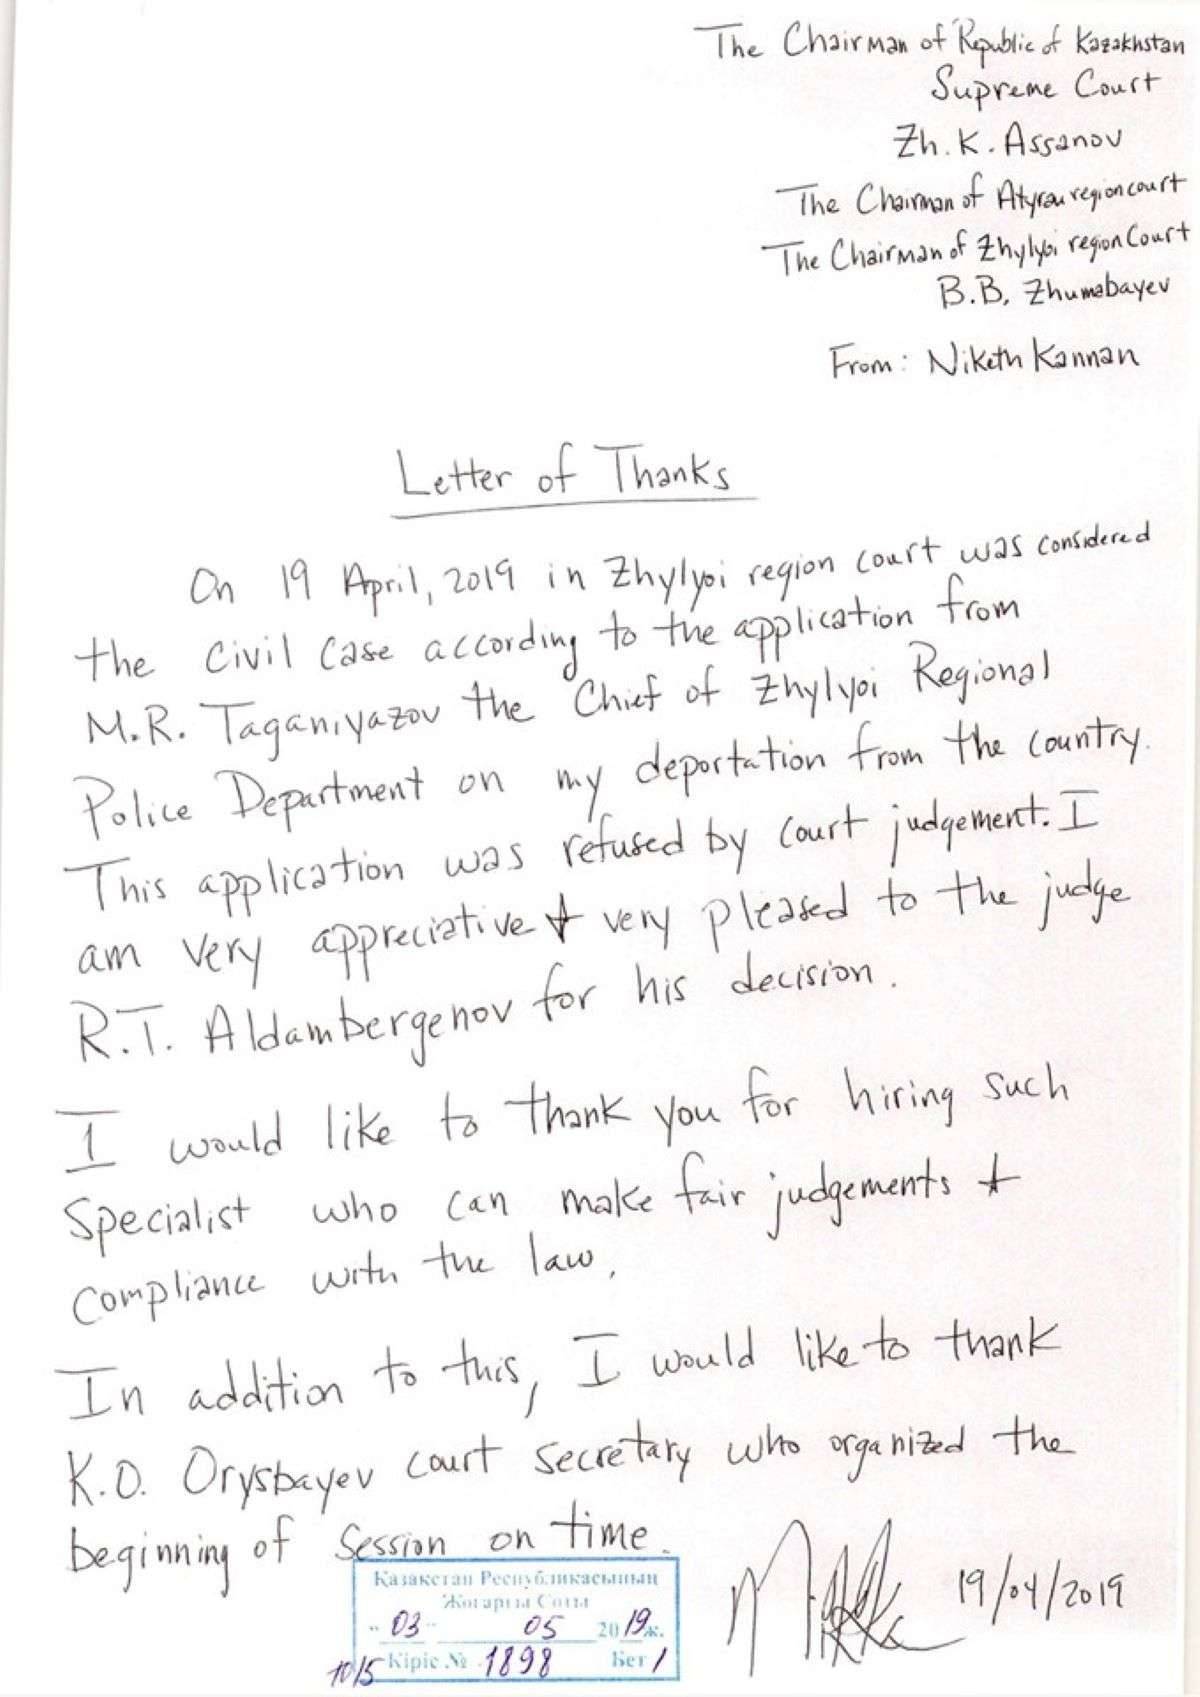 The Chairman of Republic of Kazakhstan
Supreme Court
Zh. K. Assanov
The Chairman of Atyrau region court
The Chairman of Zhylyoi region Court
B.B. Zhumabayev
From: Niketh Kannan
Letter of Thanks
On 19 April, 2019 in Zhylyoi region court was considered
the civil case according to the application from
M.R. Taganiyazov the Chief of Zhylyoi Regional
Police Department on my deportation from the country.
This application was refused by court judgement. I
am very appreciative & very pleased to the judge
R.T. Aldambergenov for his decision.
I would like to thank you for hiring such
Specialist who can make fair judgements &
compliance with the law.
In addition to this, I would like to thank
K.O. Orysbayev court secretary who organized the
beginning of session on time.
19/04/2019
Қазақстан Республикасының
Жоғарғы Соты
"03" 05 2019ж.
Кіріс № 1898 Бет 1